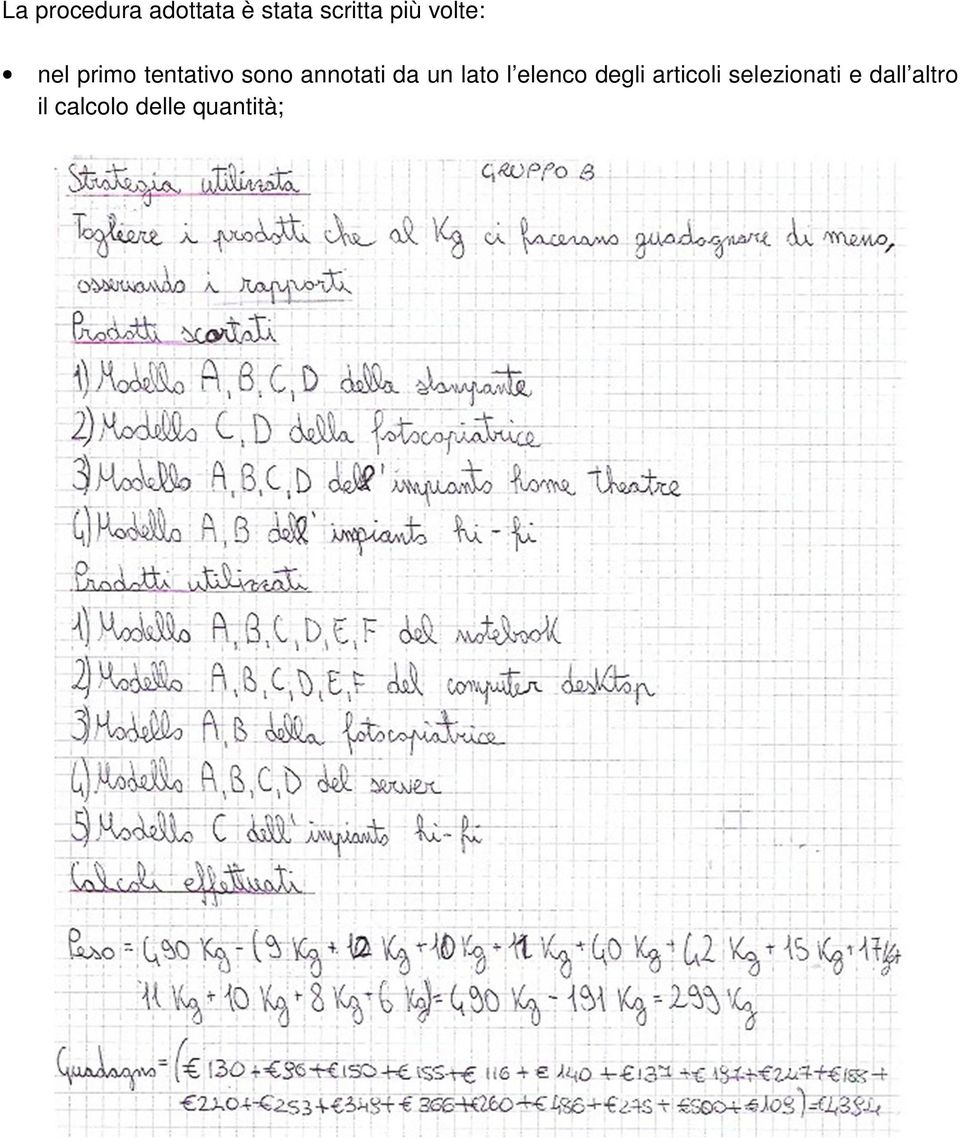 La procedura adottata è stata scritta più volte:
• nel primo tentativo sono annotati da un lato l'elenco degli articoli selezionati e dall'altro
il calcolo delle quantità;
GRUPPO B
Strategia utilizzata
Togliere i prodotti che al Kg ci facevano guadagnare di meno,
osservando i rapporti
Prodotti scartati
1) Modello A, B, C, D della stampante
2) Modello C, D della fotocopiatrice
3) Modello A, B, C, D dell'impianto home theatre
4) Modello A, B dell'impianto hi-fi
Prodotti utilizzati
1) Modello A, B, C, D, E, F del notebook
2) Modello A, B, C, D, E, F del computer desktop
3) Modello A, B della fotocopiatrice
4) Modello A, B, C, D del server
5) Modello C dell'impianto hi-fi
Calcoli effettuati
Peso = 490 Kg - (9 Kg + 12 Kg + 10 Kg + 11 Kg + 40 Kg + 42 Kg + 15 Kg + 17 Kg +
11 Kg + 10 Kg + 8 Kg + 6 Kg) = 490 Kg - 191 Kg = 299 Kg
Guadagno = (€ 130 + € 96 + € 150 + € 155 + € 116 + € 140 + € 137 + € 197 + € 247 + € 168 +
€ 220 + € 253 + € 349 + € 366 + € 260 + € 486 + € 275 + € 500 + € 109) = €4394